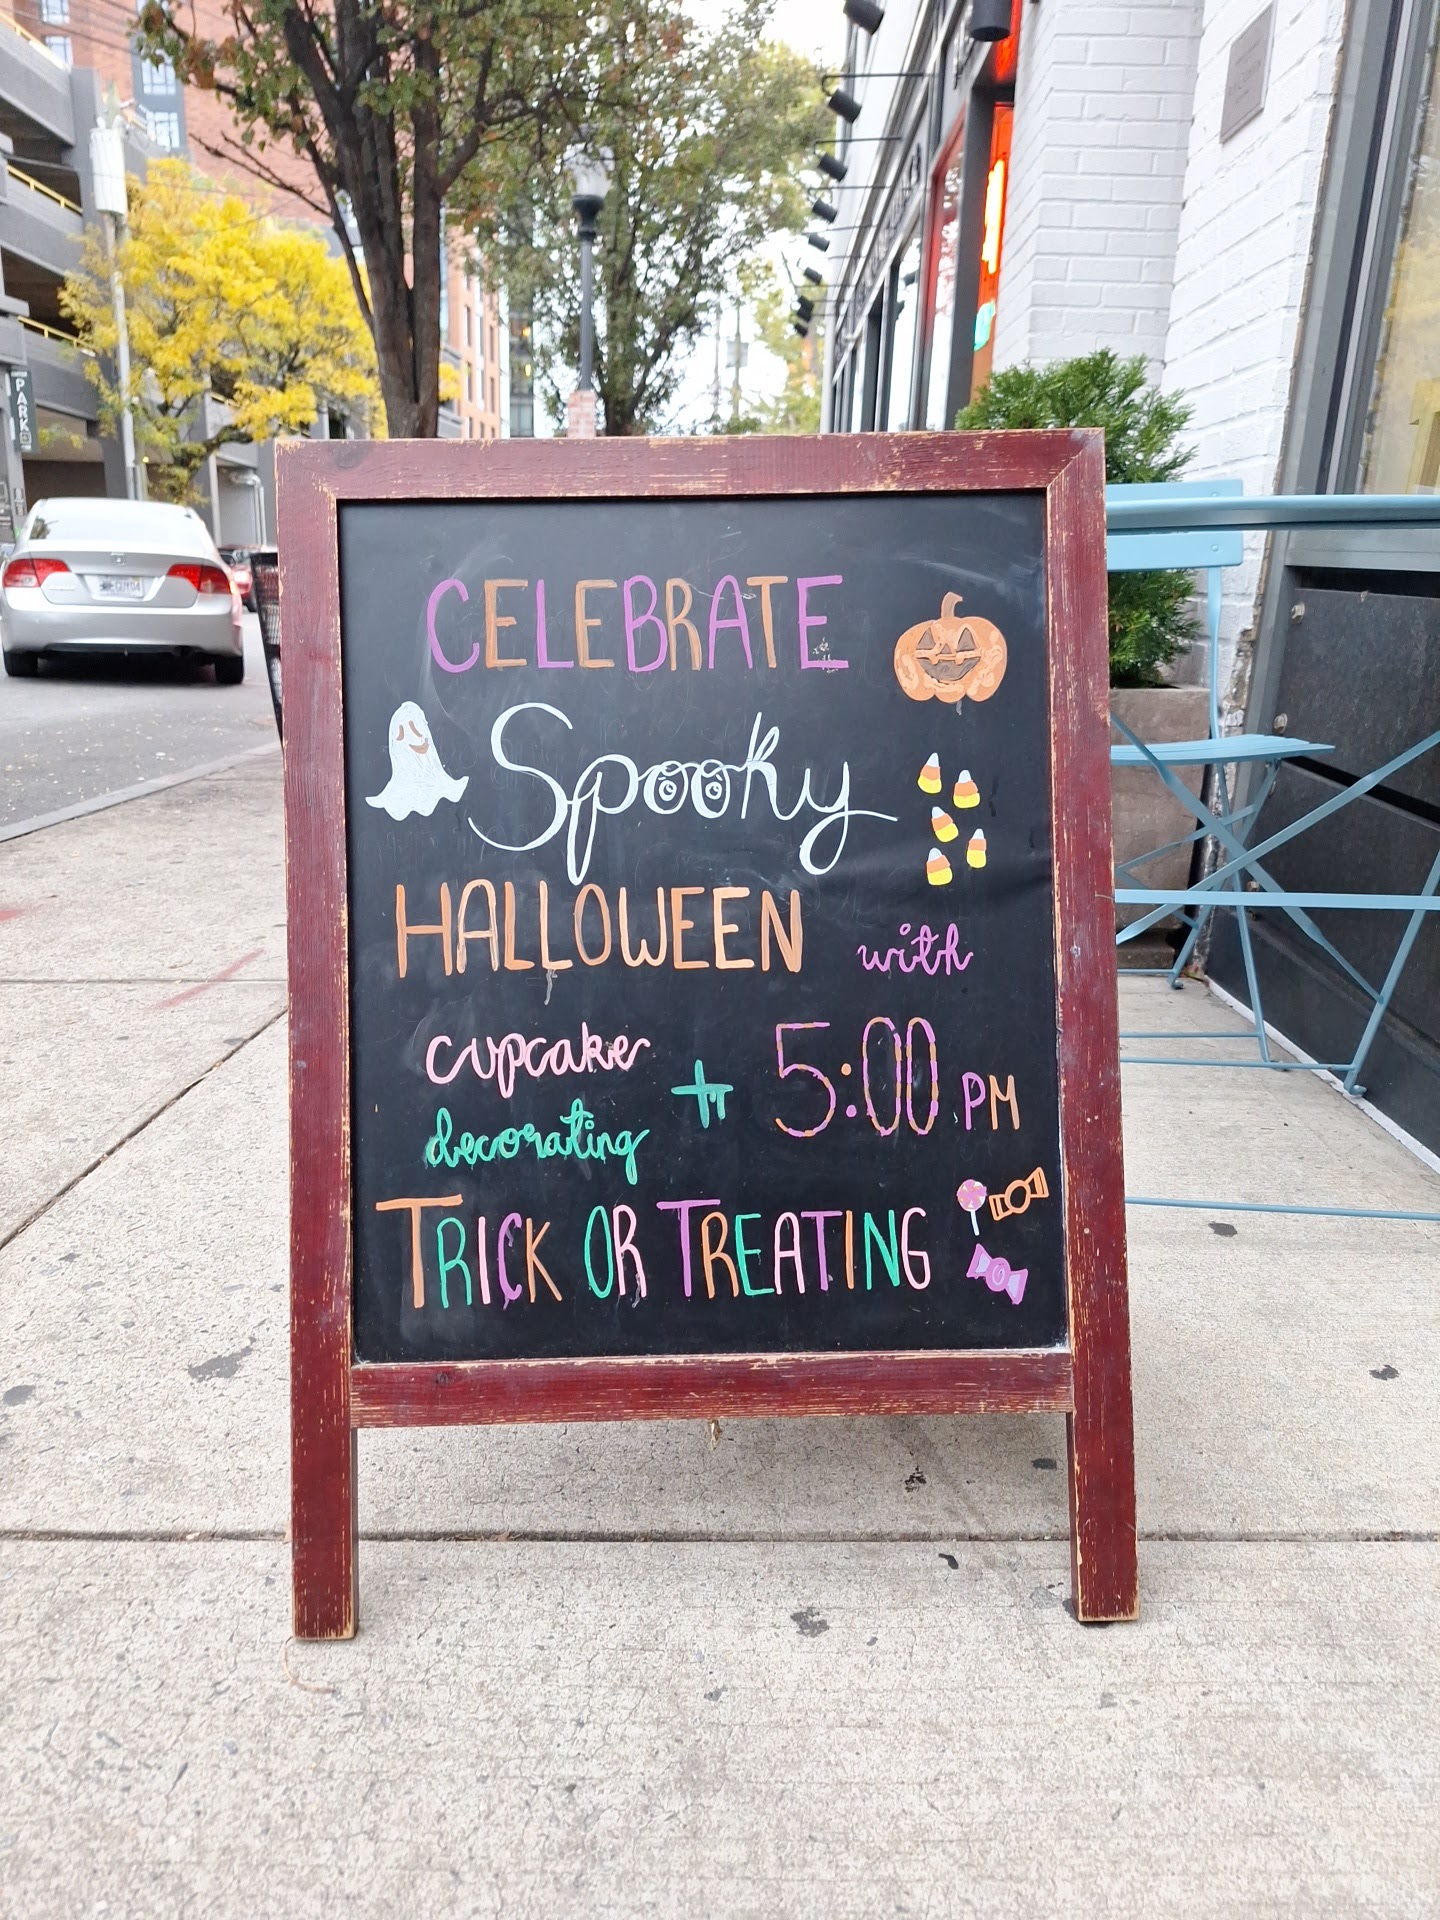 CELEBRATE
Spooky
HALLOWEEN with
cupcake
decorating + 5:00 PM
TRICK OR TREATING
PARK